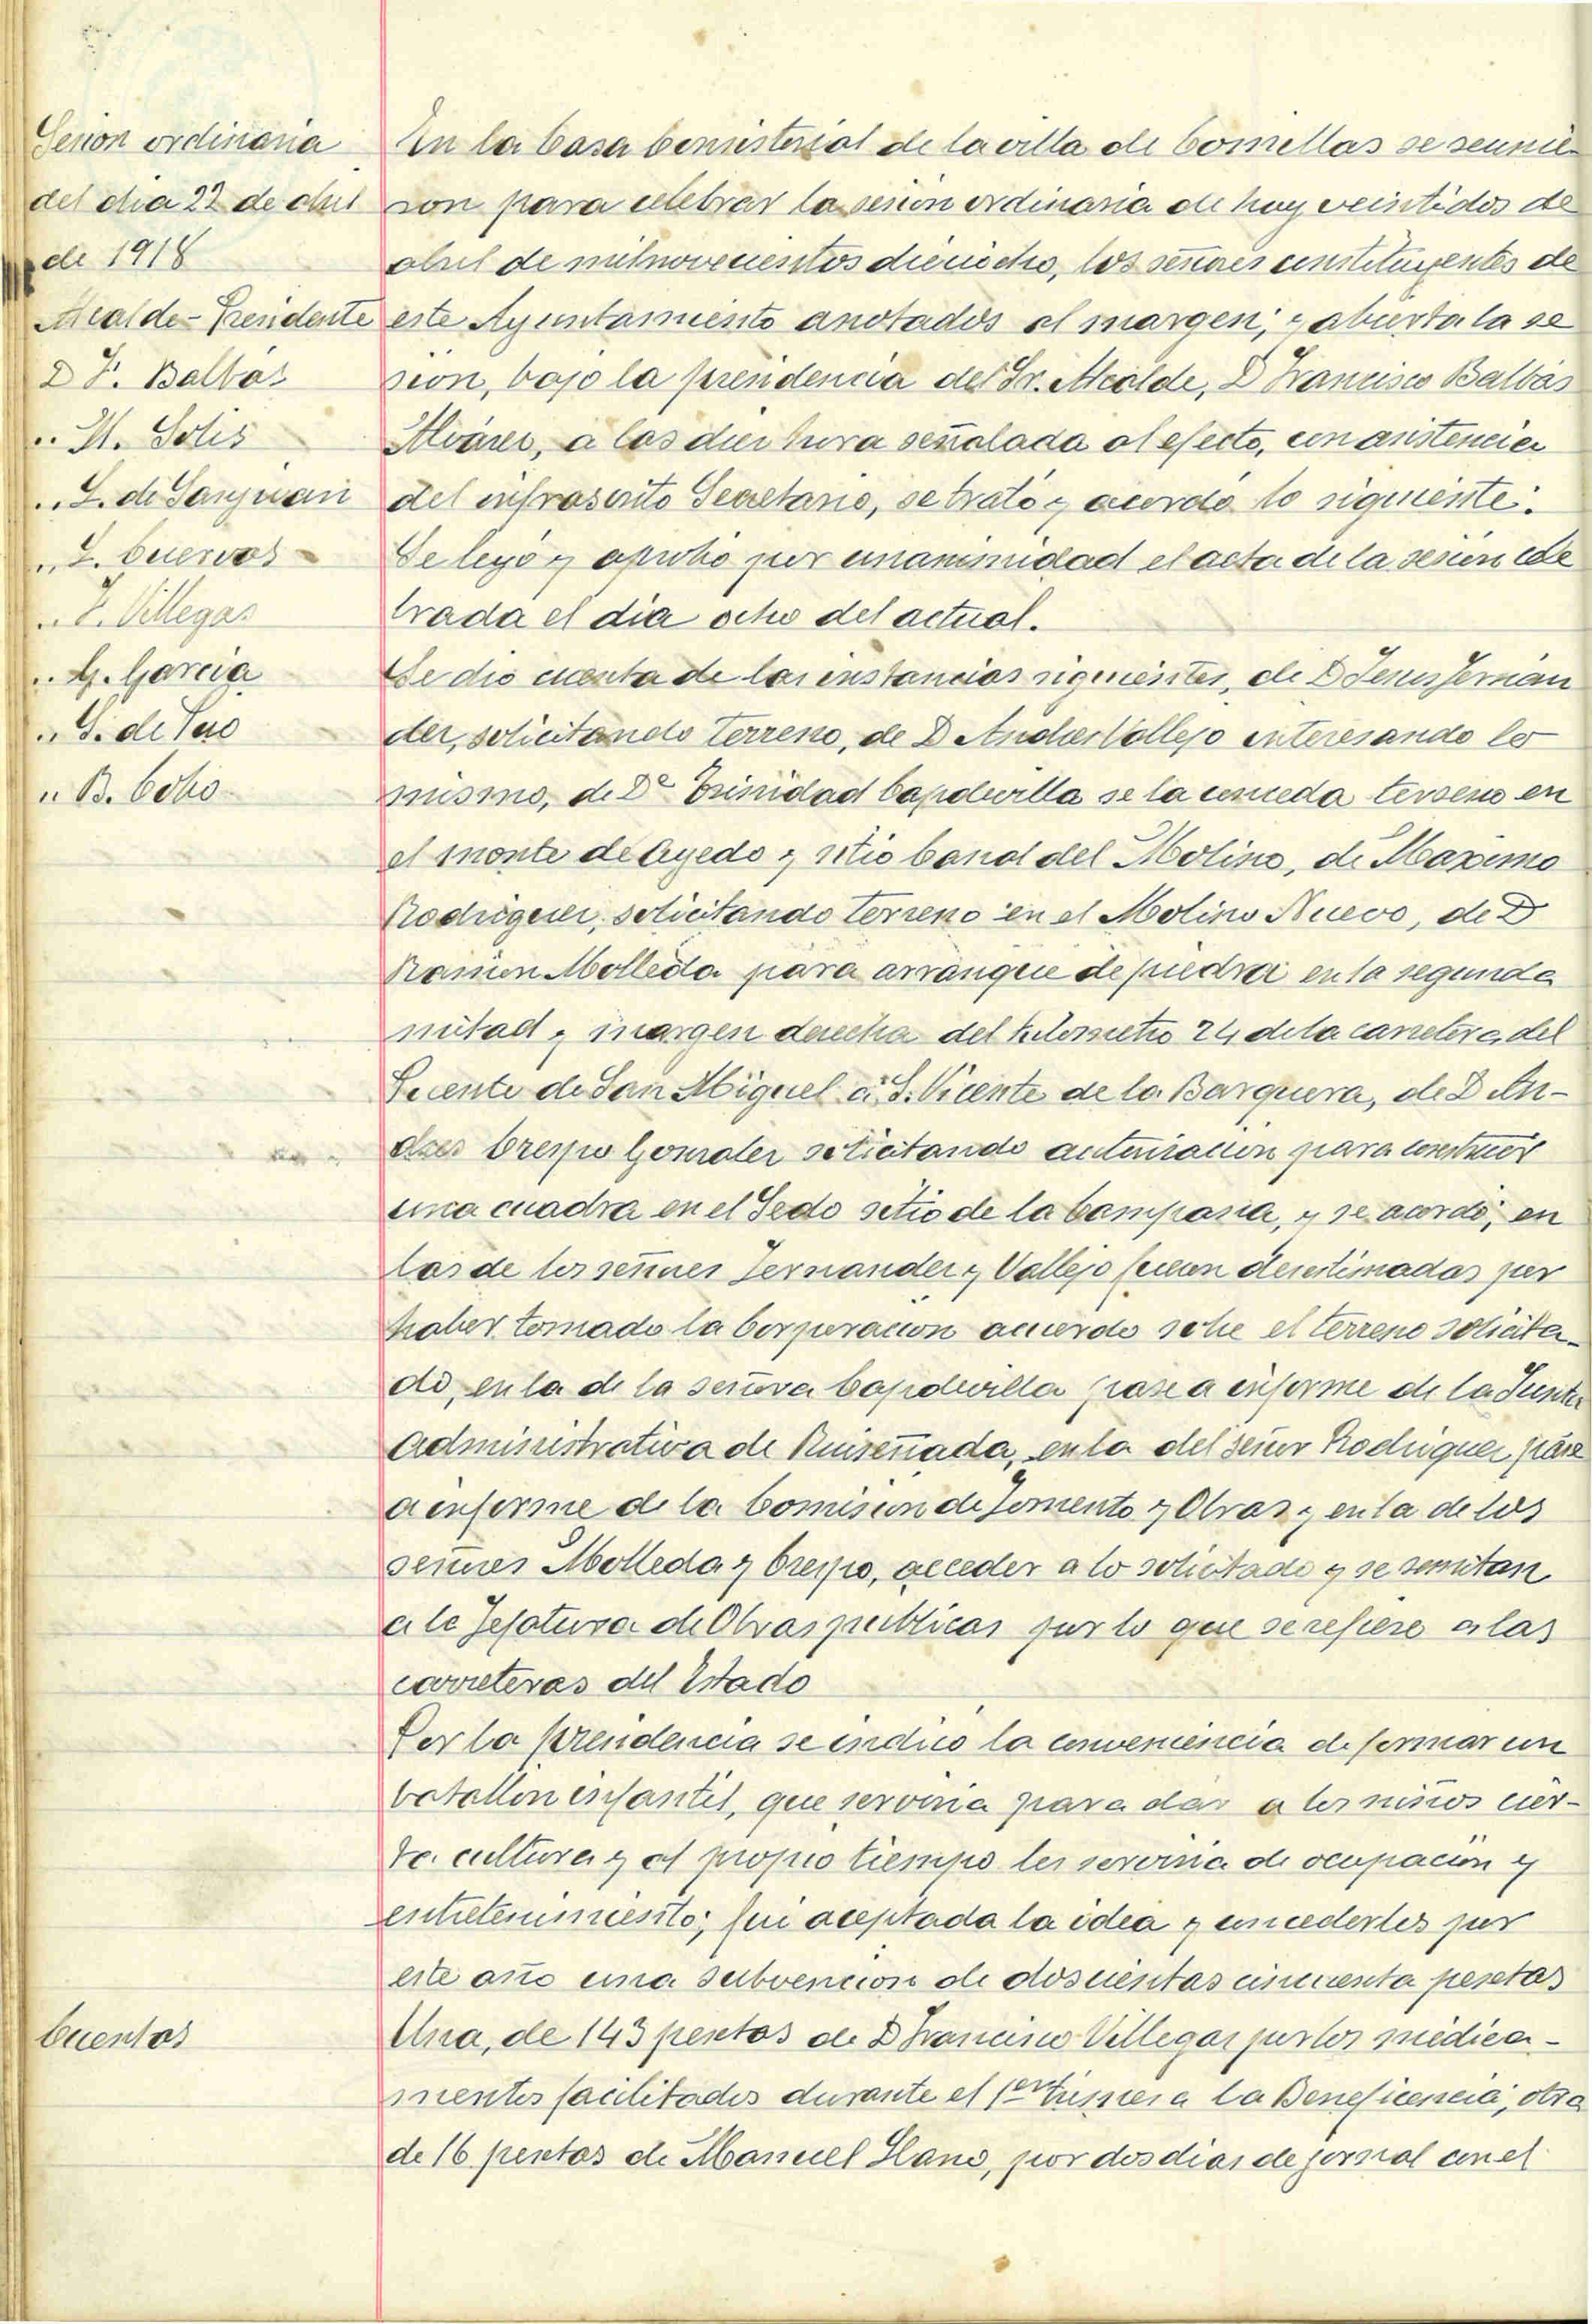 Sesion ordinaria
del dia 22 de abril
de 1918
Alcalde-Presidente
D F. Balbás
.. M. Solis
.. L. de Sanjuan
.. L. Cuervas
.. F. Villegas
.. G. Garcia
.. G. de Teso
.. B. Cobo
Cuentas
En la Casa Consistorial de la villa de Comillas se reunie-
ron para celebrar la sesion ordinaria de hoy veintidos de
abril de milnovecientos dieciocho, los señores constituyentes de
este Ayuntamiento anotados al margen; y abierta la se
sion, bajo la presidencia del Sr. Alcalde, D Francisco Balbás
Alvárez, a las diez hora señalada al efecto, con asistencia
del infrascrito Secretario, se trató y acordó lo siguiente:
Se leyó y aprobó por unanimidad el acta de la sesion cele
brada el dia ocho del actual.
Se dio cuenta de las instancias siguientes, de D Jesus Fernán
dez, solicitando terreno, de D Andres Vallejo interesando lo
mismo, de Dª Trinidad Capdevilla se la conceda terreno en
el monte de Cyedo y sitio Canal del Molino, de Maximo
Rodriguez, solicitando terreno en el Molino Nuevo, de D
Ramon Molleda para arranque de piedra en la segunda
mitad y margen derecha del kilometro 24 de la carretera del
Puente de San Miguel á S. Vicente de la Barquera, de D An-
dres Crespo Gonzalez solicitando autorizacion para construir
una cuadra en el Sedo sitio de la Campasa, y se acordó, en
las de los señores Fernandez y Vallejo fueron desestimadas por
haber tomado la Corporacion acuerdo sobre el terreno solicita-
do, en la de la señora Capdevilla pase a informe de la Junta
Administrativa de Ruiseñada, en la del señor Rodriguez pase
a informe de la Comision de Fomento y Obras y en la de los
señores Molleda y Crespo, acceder a lo solicitado y se remitan
a la Jefatura de Obras publicas por lo que se refiere a las
carreteras del Estado
Por la presidencia se indicó la conveniencia de formar un
batallon infantil, que serviria para dar a los niños cier-
ta cultura y al propio tiempo les serviria de ocupación y
entretenimiento; fui aceptada la idea y concederles por
este año una subvencion de doscientas cincuenta pesetas
Una, de 143 pesetas de D Francisco Villegas por los medica-
mentos facilitados durante el 1er trimes a la Beneficencia, otra
de 16 pesetas de Manuel Llano, por dos dias de jornal con el